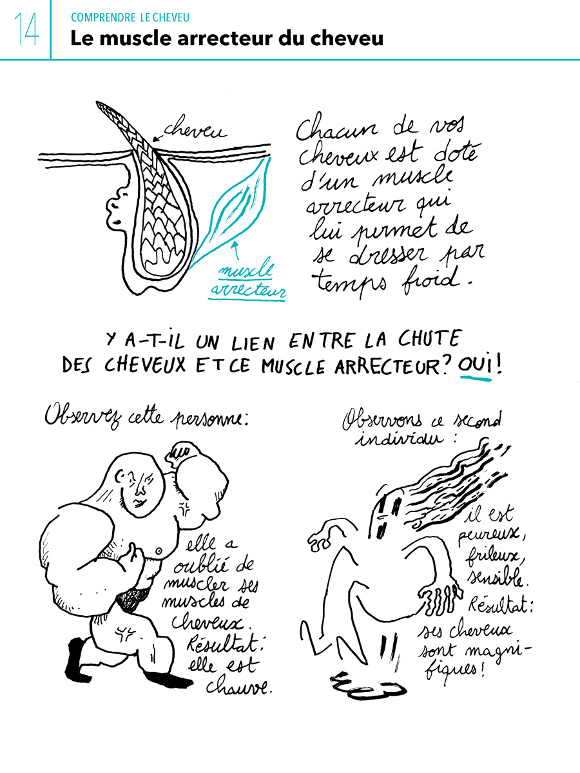 14
COMPRENDRE LE CHEVEU
Le muscle arrecteur du cheveu
cheveu
muscle
arrecteur
Chacun de vos
cheveux est doté
d'un muscle
arrecteur qui
lui permet de
se dresser par
temps froid.
Y A-T-IL UN LIEN ENTRE LA CHUTE
DES CHEVEUX ET CE MUSCLE ARRECTEUR? OUI!
Observez cette personne:
elle a
oublié de
muscler ses
muscles de
cheveux.
Résultat:
elle est
chauve.
Observons ce second
individu :
il est
peureux,
frileux,
sensible.
Résultat:
ses cheveux
sont magni-
fiques!